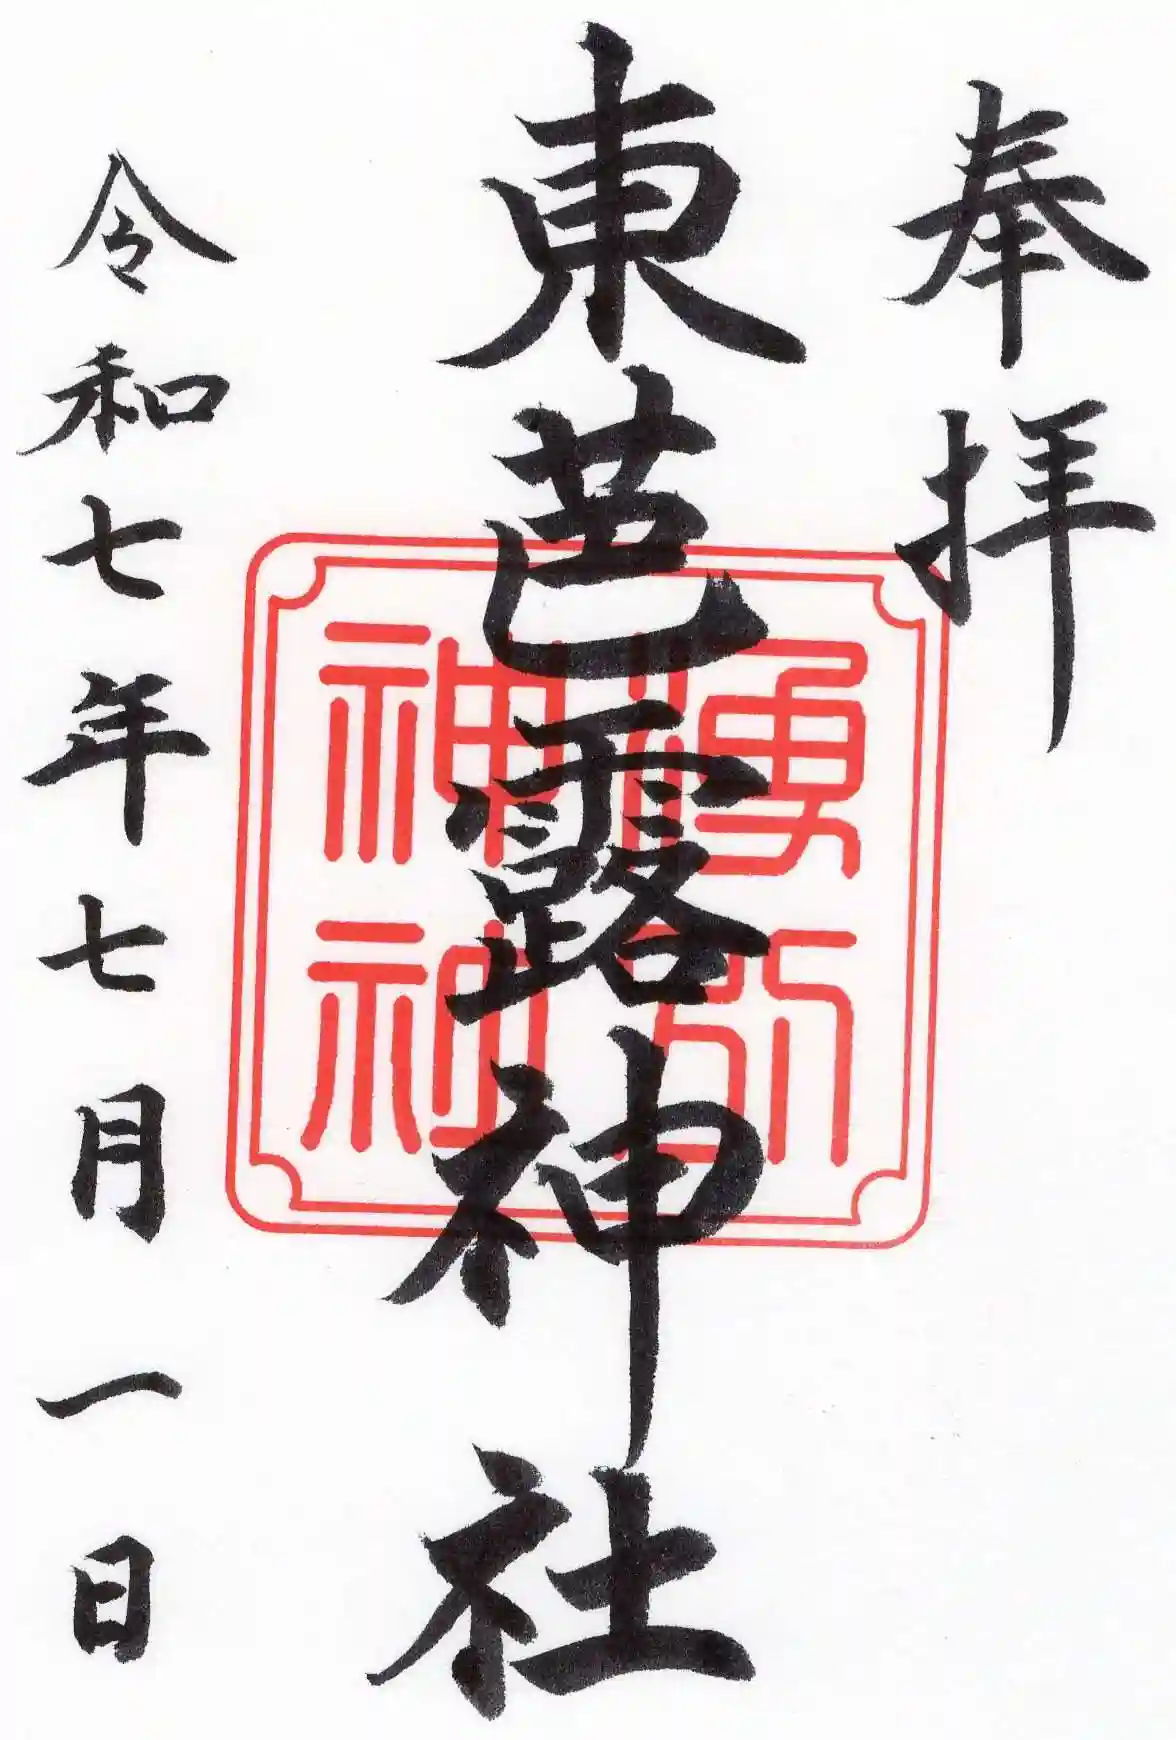 奉拝
東芭露神社
令和七年七月一日